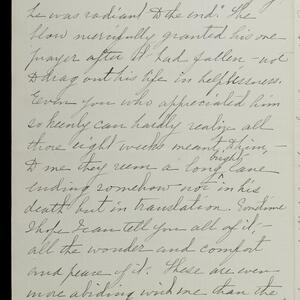 he was radiant to the end". The
blow mercifully granted his one
prayer after it had fallen - not
to drag out his life in helplessness.
Even you who appreciated him
so keenly can hardly realize all
those eight weeks meant to him,
to me they seem a long bright lane
ending somehow not in his
death but in translation. Sometime
I hope I can tell you all of it, -
all the wonder and comfort
and peace of it. These are even
more abiding with me than the